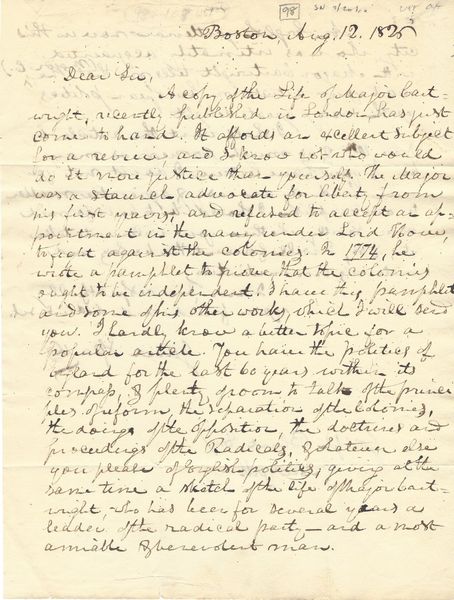 98
Boston, Aug. 12. 1825
Dear Sir,
A copy of the Life of Major Cart-
wright, recently published in London, has just
come to hand. It affords an excellent subject
for a review, and I know not who would
do it more justice than yourself. The Major
was a staunch advocate for liberty from
his first years, and refused to accept an ap-
pointment in the navy under Lord Howe,
to fight against the colonies. In 1774, he
wrote a pamphlet to prove that the colonies
ought to be independent. I have this pamphlet
and some of his other works, which I will send
you. I hardly know a better topic for a
popular article. You have the politics of
England for the last 60 years within its
compass, & plenty of room to talk of the princi-
ples of reform, the separation of the Colonies,
the doings of the opposition, the doctrines and
proceedings of the Radicals, & whatever else
you please of English politics, giving at the
same time a sketch of the life of Major Cart-
wright, who has been for several years a
leader of the radical party – and a most
amiable & benevolent man.